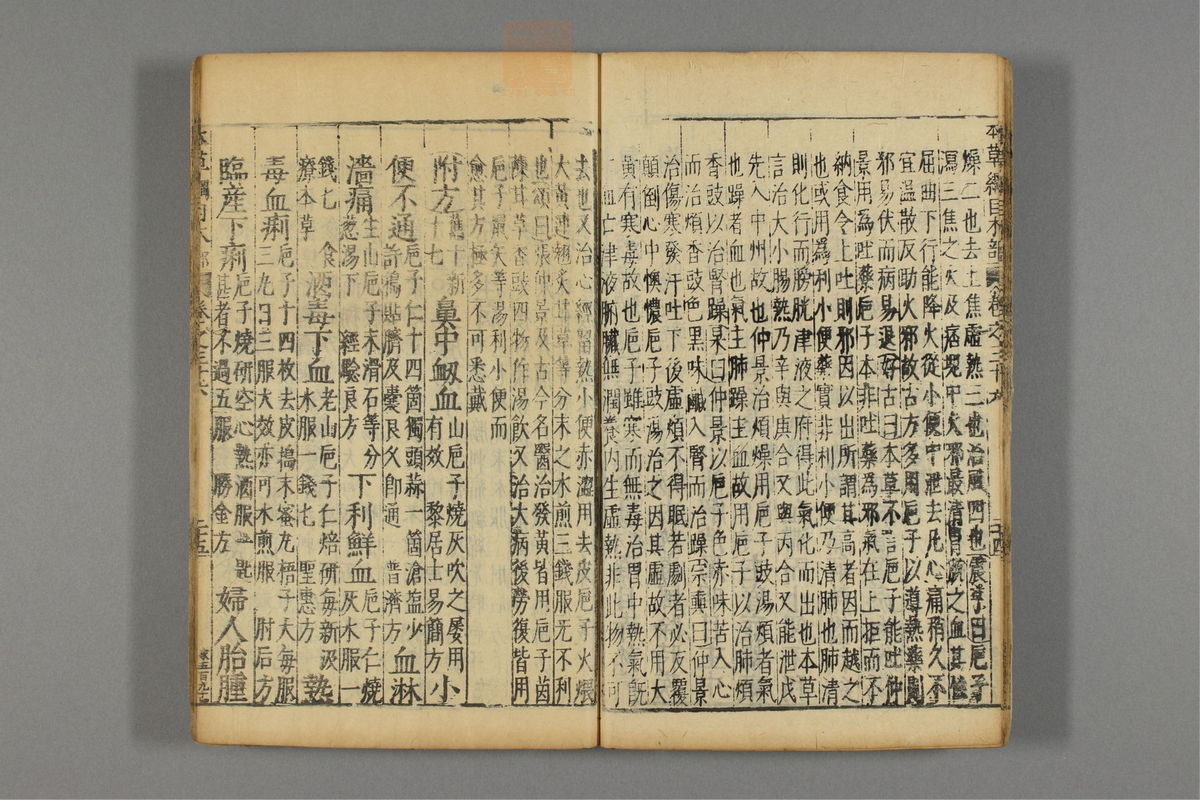 本草綱目木部 卷之三十六 二十四
燥二也去上焦虛熱二也治風四也震亨曰巵子
瀉三焦之火及痞塊中火邪最清胃脘之血其性
屈曲下行能降火從小便中泄去凡心痛稍久不
宜溫散反助火邪故古方多用巵子以導熱藥則
邪易伏而病易退好古曰本草不言巵子能吐仲
景用為吐藥巵子本非吐藥為邪氣在上拒而不
納食令上吐則邪因以出所謂其高者因而越之
也或用為利小便藥實非利小便乃清肺也肺清
則化行而膀胱津液之府得此氣化而出也本草
言治大小腸熱乃辛與庚合又與丙合又能泄戊
先入中州故也仲景治煩燥用巵子豉湯煩者氣
也躁者血也氣主肺躁主血故用巵子以治肺煩
香豉以治腎躁杲曰仲景以巵子色赤味苦入心
而治煩香豉色黑味鹹入腎而治躁宗奭曰仲景
治傷寒發汗吐下後虛煩不得眠若劇者必反覆
顛倒心中懊憹巵子豉湯治之因其虛故不用大
黃有寒毒故也巵子雖寒而無毒治胃中熱氣既
亡血亡津液腑臟無潤養內生虛熱非此物不可
去也又治心經留熱小便赤澀用去皮巵子火煨
大黃連翹炙甘草等分末之水煎三錢服无不利
也頌曰張仲景及古今名醫治發黃皆用巵子茵
蔯甘草香豉四物作湯飲又治大病後勞復皆用
巵子鼠矢等湯利小便而
愈其方極多不可悉載
附方舊十新十七 鼻中衂血山巵子燒灰吹之屢用有效 黎居士易簡方 小
便不通巵子仁十四箇獨頭蒜一箇滄鹽少許搗貼臍及囊良久即通 普濟方 血淋
濇痛生山巵子末滑石等分葱湯下 經驗良方 下利鮮血巵子仁燒灰水服一
錢匕 食療本草 酒毒下血老山巵子仁焙研每新汲水服一錢匕 聖惠方 熱
毒血痢巵子十四枚去皮搗末蜜丸梧子大每服三丸日三服大效亦可水煎服 肘后方
臨産下痢巵子燒研空心熱酒服一匙甚者不過五服 勝金方 婦人胎腫
本草綱目木部 卷之三十六 二十五